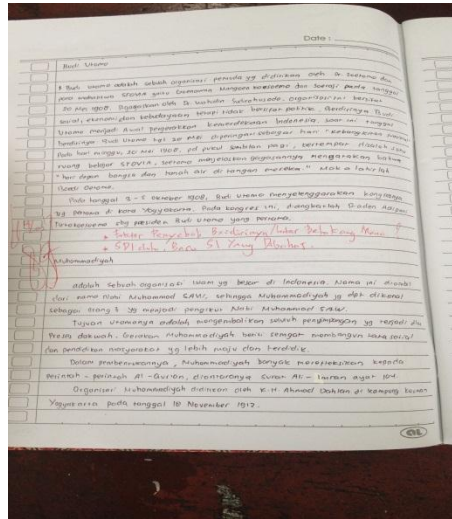 Date :
Budi Utomo
Budi Utomo adalah sebuah organisasi pemuda yg didirikan oleh Dr. Soetomo dan
para mahasiswa STOVIA yaitu Goenawan Mangoenkoesoemo dan Soeraji pada tanggal
20 Mei 1908. Digagaskan oleh Dr. Wahidin Sudirohusodo, organisasi ini bersifat
sosial, ekonomi, dan kebudayaan tetapi tidak bersifat politik. Berdirinya Budi
Utomo menjadi awal pergerakan kemerdekaan Indonesia, saat ini tanggal
berdirinya Budi Utomo tgl 20 Mei diperingati sebagai hari "Kebangkitan Nasional
Pada hari minggu, 20 Mei 1908, pd pukul sembilan pagi, bertempat disalah satu
ruang belajar STOVIA, Soetomo menjelaskan gagasannya mengatakan bahwa
"hari depan bangsa dan tanah air di tangan mereka." Maka lahirlah
Boedi Oetomo.
Pada tanggal 3-5 Oktober 1908, Budi Utomo menyelenggarakan kongresnya
yg pertama di kota Yogyakarta. Pada kongres ini, diangkatlah Raden Adipati
Tirtokoesoemo sbg presiden Budi Utomo yang pertama.
Faktor Penyebab Berdirinya/Latar Belakang Mana ?
SDI dulu, Baru SI Yang Dibahas.
Muhammadiyah
adalah sebuah organisasi Islam yg besar di Indonesia. Nama ini diambil
dari nama Nabi Muhammad SAW, sehingga Muhammadiyah jg dpt dikenal
sebagai orang2 yg menjadi pengikut Nabi Muhammad SAW.
Tujuan utamanya adalah mengembalikan seluruh penyimpangan yg terjadi dlm
Proses dakwah. Gerakan Muhammadiyah berciri semangat membangun tata sosial
dan pendidikan masyarakat yg lebih maju dan terdidik.
Dalam pembentukannya, Muhammadiyah banyak merefleksikan kepada
perintah - perintah Al-Quran, diantaranya surat Ali - Imran ayat 104.
Organisasi Muhammadiyah didirikan oleh K.H. Ahmad Dahlan di kampung Kauman
Yogyakarta pada tanggal 18 November 1912.